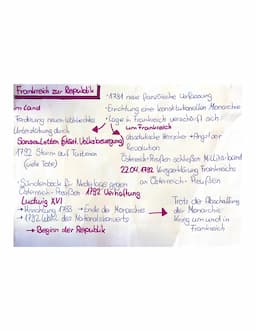 Frankreich zur Republik
· 1791 neue französische Verfassung
· Errichtung einer konstitutionellen Monarchie
· Lage in Frankreich verschärft sich
im Land
Forderung neuen Wahlrechts
Unterstützung durch
Sansculotten
1792 Sturm auf Tuilerien
(viele Tote)
um Frankreich
Absolutistische Herrscher → Angst vor
Revolution
Österreich-Preußen schließen Militärbund
22.04.1792 Kriegserklärung Frankreichs
an Österreich-Preußen
· Sündenbock für Niederlage gegen
Österreich-Preußen 1792 Verhaftung
Ludwig XVI
→ Hinrichtung 1793 → Ende der Monarchie
→ 1792 Wahl des Nationalkonvents
→ Beginn der Republik
Trotz der Abschaffung
der Monarchie
Krieg um und in
Frankreich